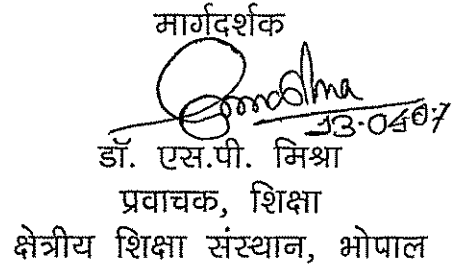 मार्गदर्शक
डॉ. एस.पी. मिश्रा
प्रवाचक, शिक्षा
क्षेत्रीय शिक्षा संस्थान, भोपाल